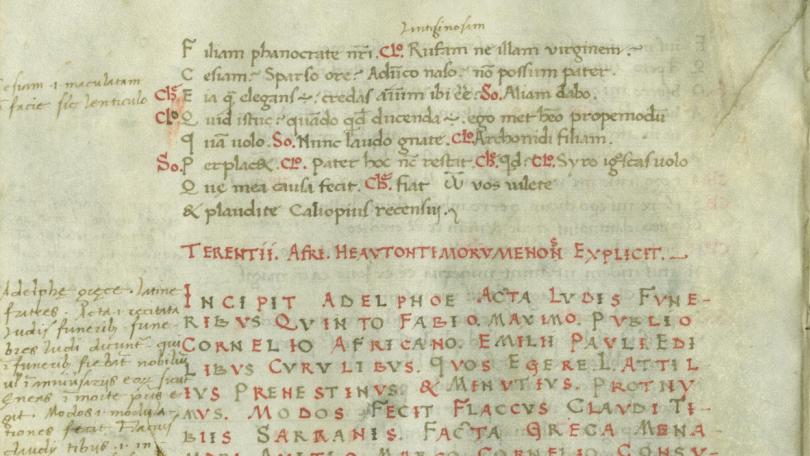 lentiginosam
Filiam phanocrate nr̄i. Clo. Rufam ne illam virginem
Cesiam. Sparso ore. Adūco naso. nō possum pater.
cesiam .i. maculatam
facie sic lenticulo
Chs. Eia q̄ elegans credas aīum ibi eē. So. Aliam dabo.
Clo. Quid istuc. quādo qd ducenda. ego met hēo propemodū
quā uolo. So. Nunc laudo gnate. Clo. Archonidi filiam.
So. Perplac&. Clo. Pater hoc nc̄ restat. Ch. qd. Clo. Syro ignscas uolo
Que mea causa fecit. Ch. fiat ω vos valete
& plaudite Caliopius recensui.
TERENTII. AFRI. HEAVTONTIMORVMENOS EXPLICIT.
INCIPIT ADELPHOE ACTA LUDIS FUNE-
RIBVS QVINTO FABIO. MAXIMO. PVBLIO
CORNELIO AFRICANO. EMILII PAVLI EDI
LIBUS CVRVLIBVS. QVOS EGERE. L. ATTIL
IVS PRENESTINVS. & MINVTIVS. PROTINV
MVS. MODOS FECIT FLACCVS CLAVDI TI-
BIIS SARRANIS. FACTA GRECA MENA-
CORNELIO CONSV-
Adelphe grece. latine
fratres. Acta i. recitata
ludis funerib fune-
bres ludi dicunt. qui
ī funerib fiebāt nobiliū
git. Modos i. modula-
tiones fecit Flaccus
claudii tibiis. i. in